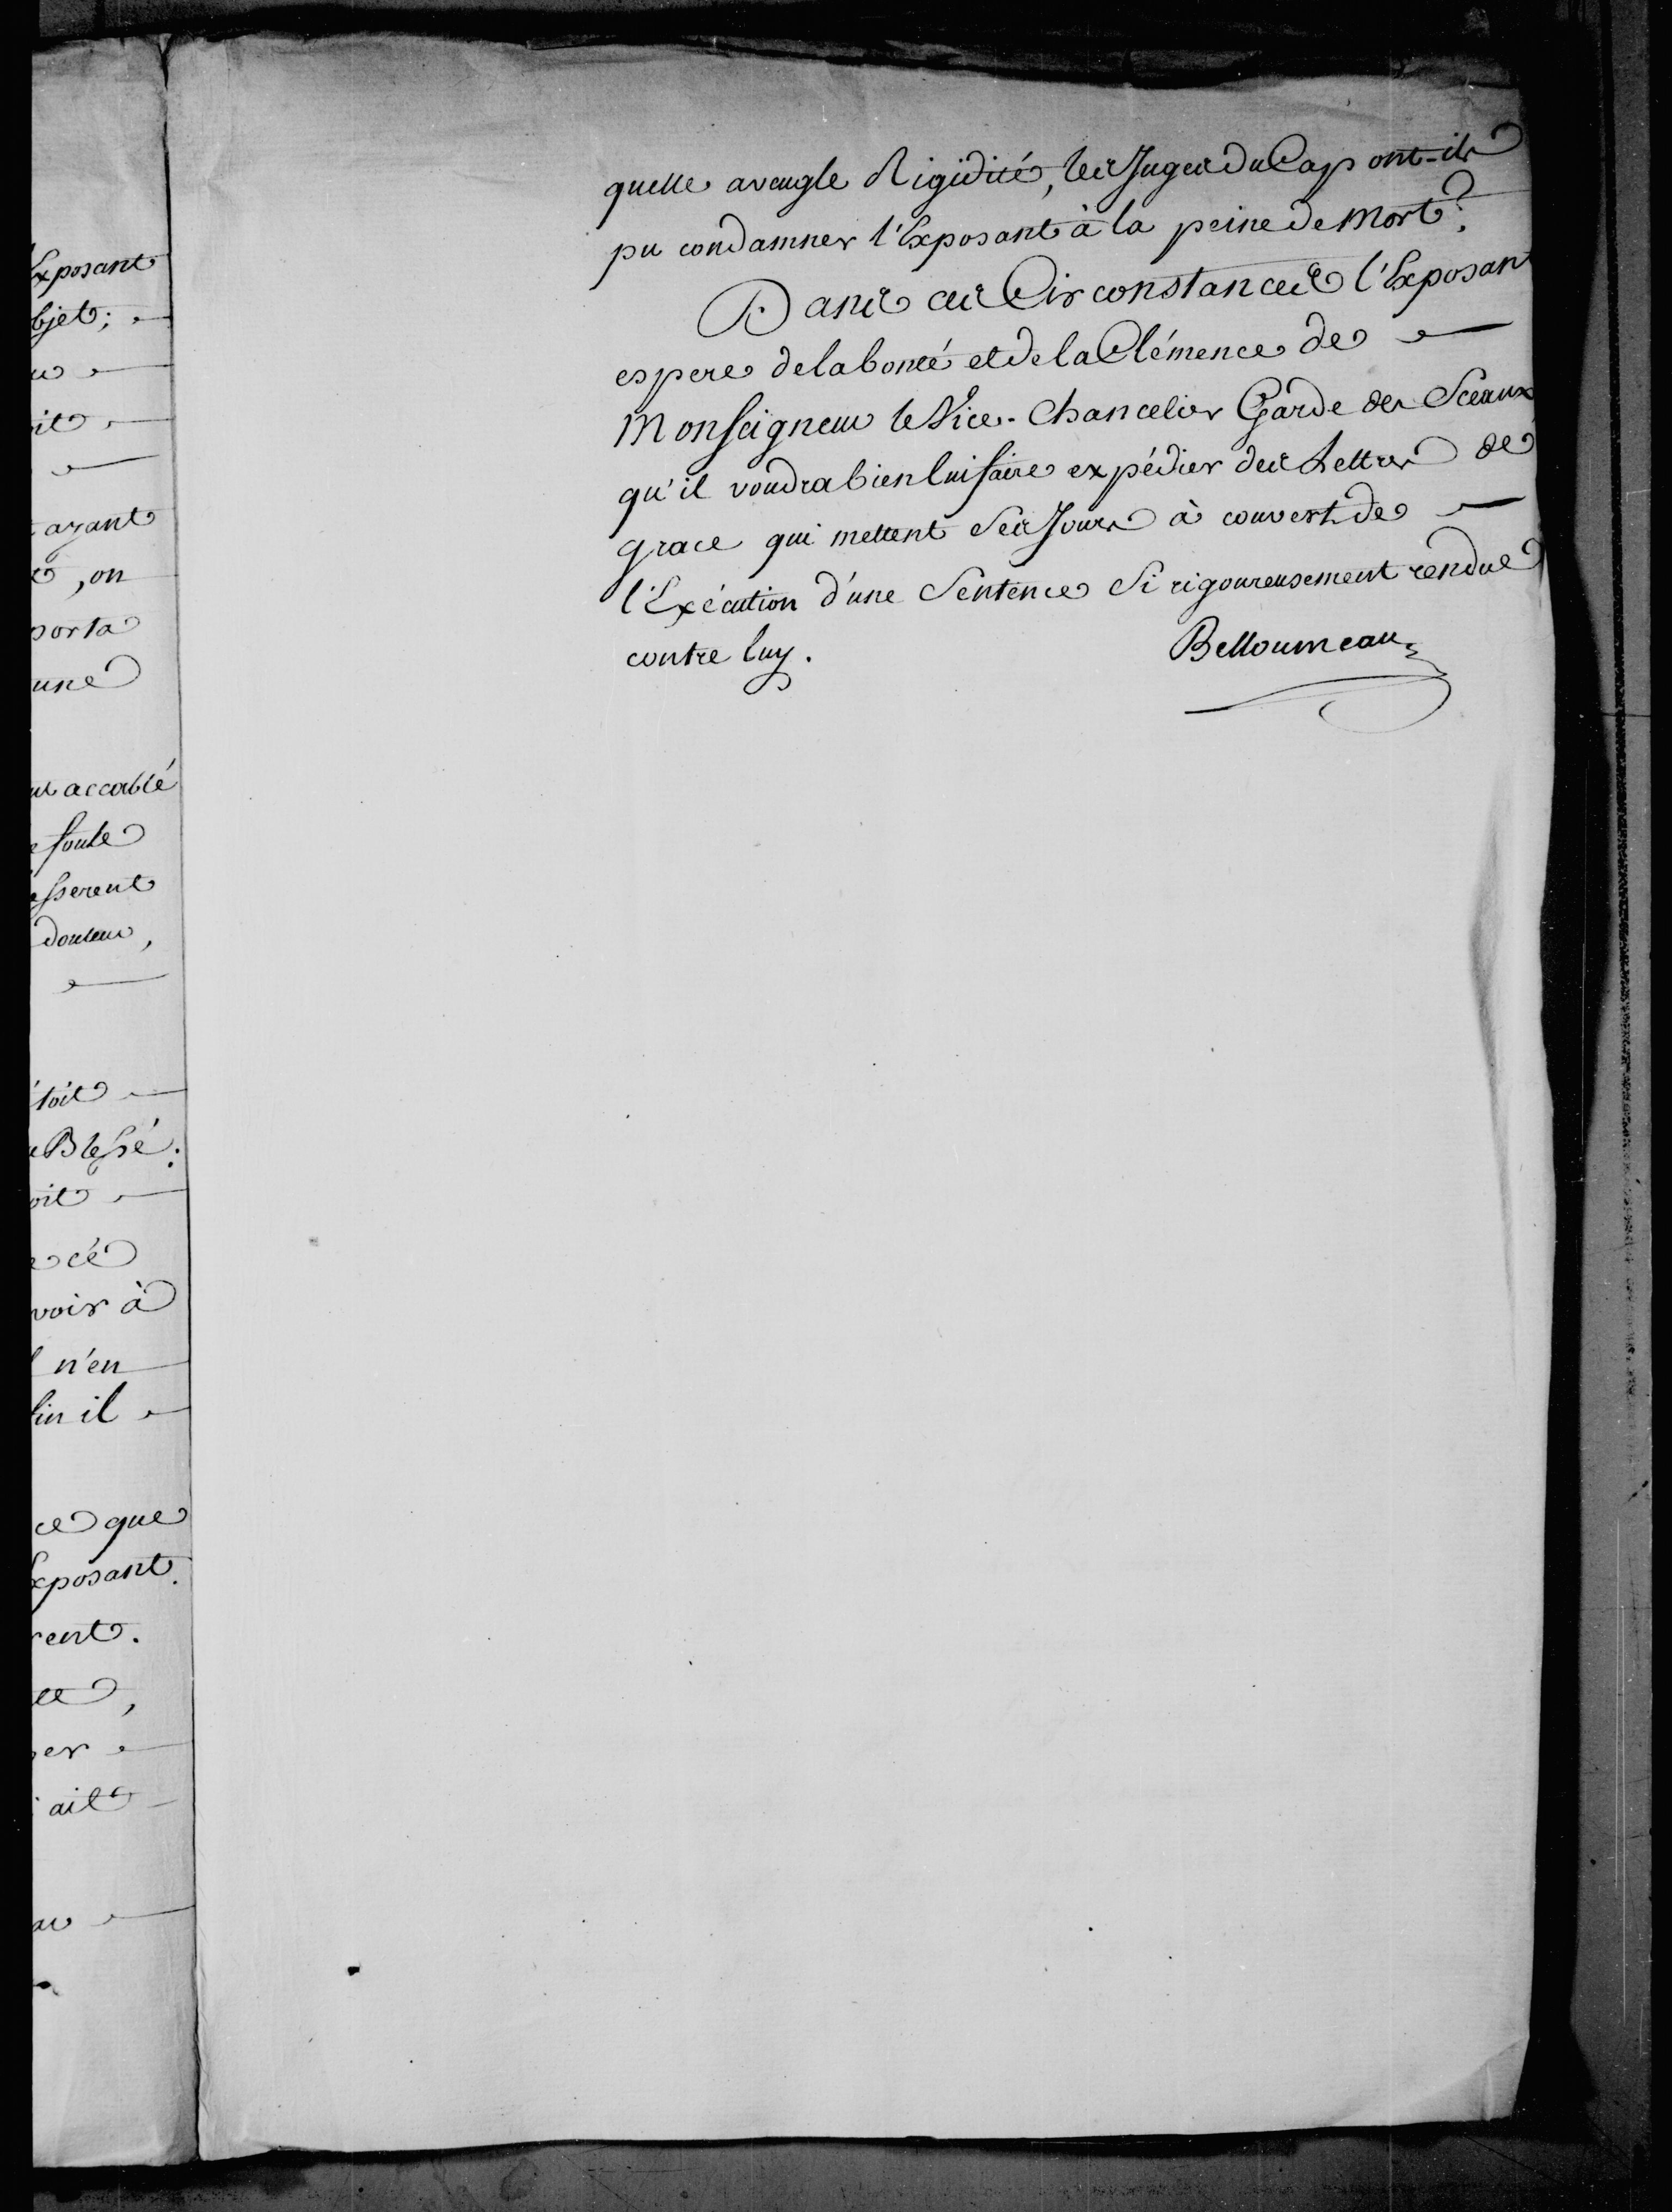 Exposant
bjet;
it
ayant
, on
porta
une
accablé
foule
esserent
douleur,
toit
Blessé:
oit
cé
voir à
n'en
fin il
ce que
Exposant.
rent.
er
ait
quelle aveugle Rigidité, les Juges du Cap ont-ils
pu condamner l'Exposant à la peine de Mort?
Dans ces Circonstances l'Exposant
espere de la bonté et de la Clémence de
Monseigneur le Vice-Chancelier Garde des Sceaux
qu'il voudra bien lui faire expédier des Lettres de
grace qui mettent Ses Jours à couvert de
l'Exécution d'une Sentence Si rigoureusement rendue
contre luy.
Belloumeau